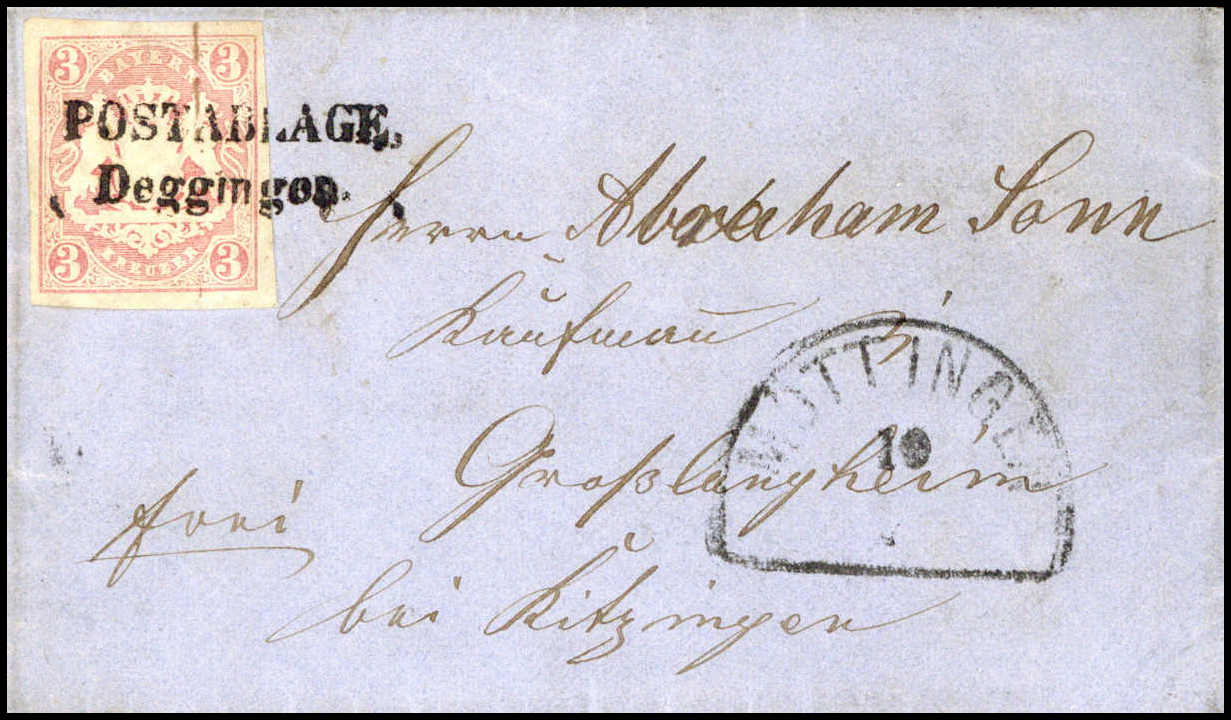 3 BAYERN 3
POSTABLAGE.
Deggingen.
3 KREUZER 3
Herrn Abraham Sonn
Kaufmann
MÖTTINGEN
10
Großlangheim
frei
bei Kitzingen